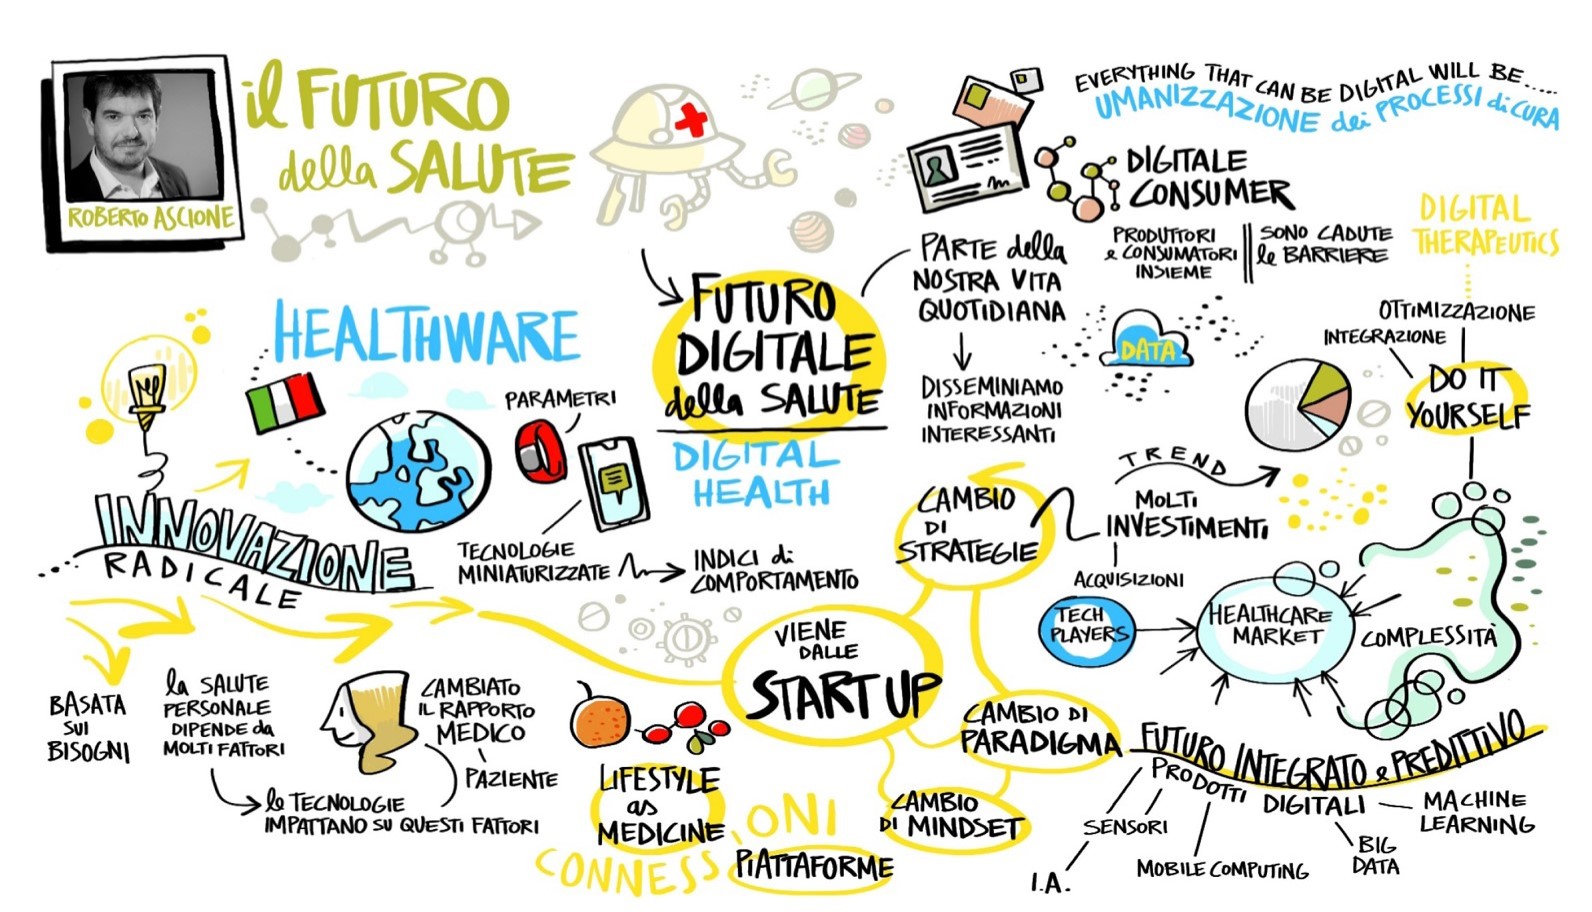 il FUTURO
della SALUTE
ROBERTO ASCIONE
EVERYTHING THAT CAN BE DIGITAL WILL BE.....
UMANIZZAZIONE dei PROCESSI di CURA
DIGITALE
CONSUMER
PRODUTTORI
e CONSUMATORI
INSIEME
SONO CADUTE
le BARRIERE
DIGITAL
THERAPEUTICS
OTTIMIZZAZIONE
INTEGRAZIONE
DO IT
YOURSELF
PARTE della
NOSTRA VITA
QUOTIDIANA
DISSEMINIAMO
INFORMAZIONI
INTERESSANTI
DATA
FUTURO
DIGITALE
della SALUTE
DIGITAL
HEALTH
HEALTHWARE
PARAMETRI
TECNOLOGIE
MINIATURIZZATE
INDICI di
COMPORTAMENTO
INNOVAZIONE
RADICALE
BASATA
sui
BISOGNI
la SALUTE
PERSONALE
DIPENDE da
MOLTI FATTORI
le TECNOLOGIE
IMPATTANO SU QUESTI FATTORI
CAMBIATO
IL RAPPORTO
MEDICO
PAZIENTE
LIFESTYLE
as
MEDICINE
CONNESSIONI
PIATTAFORME
VIENE
DALLE
START UP
CAMBIO
DI
STRATEGIE
TREND
MOLTI
INVESTIMENTI
ACQUISIZIONI
TECH
PLAYERS
HEALTHCARE
MARKET
COMPLESSITÀ
CAMBIO DI
PARADIGMA
CAMBIO
DI MINDSET
FUTURO INTEGRATO e PREDITTIVO
PRODOTTI DIGITALI
SENSORI
I.A.
MOBILE COMPUTING
BIG
DATA
MACHINE
LEARNING